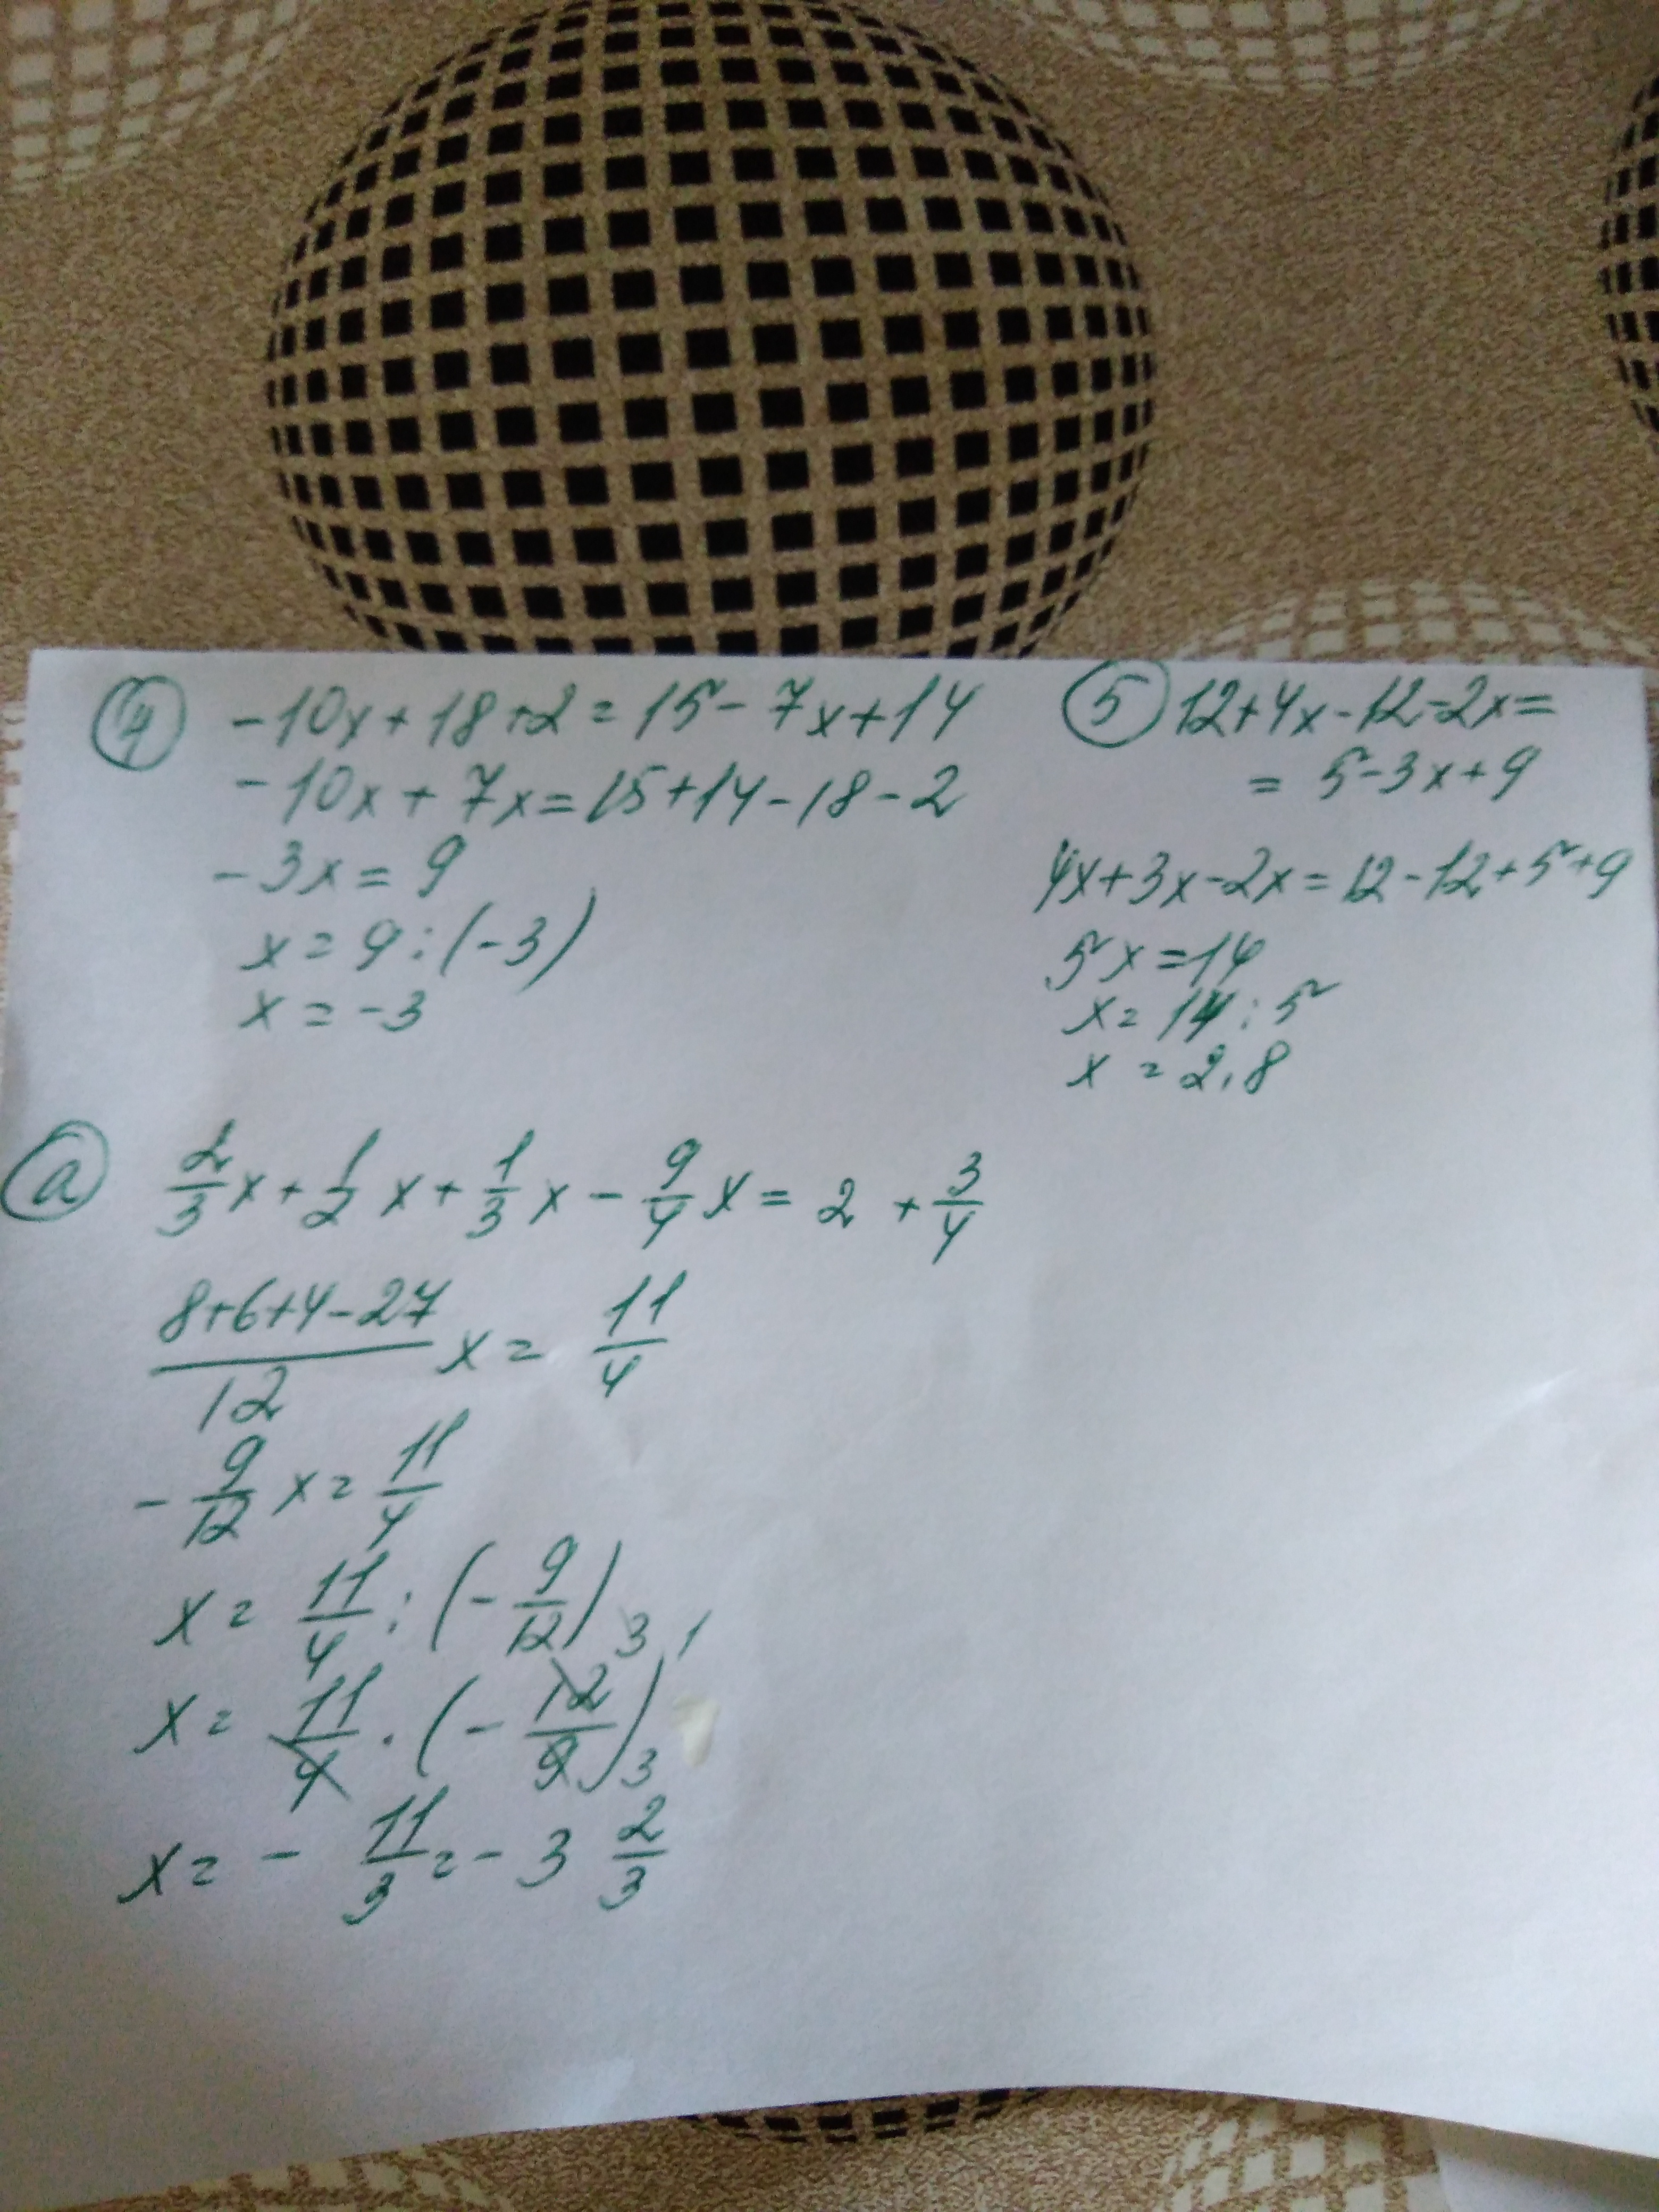 ④ -10x+18+2=15-7x+14
-10x+7x=15+14-18-2
-3x=9
x=9:(-3)
x=-3
⑤ 12+4x-12-2x=
=5-3x+9
4x+3x-2x=12-12+5+9
5x=14
x=14:5
x=2,8
ⓐ 2/3x+1/2x+1/3x-9/4x=2+3/4
8+6+4-27/12 x=11/4
-9/12x=11/4
x=11/4:(-9/12)
3 1
x=11/4·(-12/9)3
x=-11/3=-3 2/3